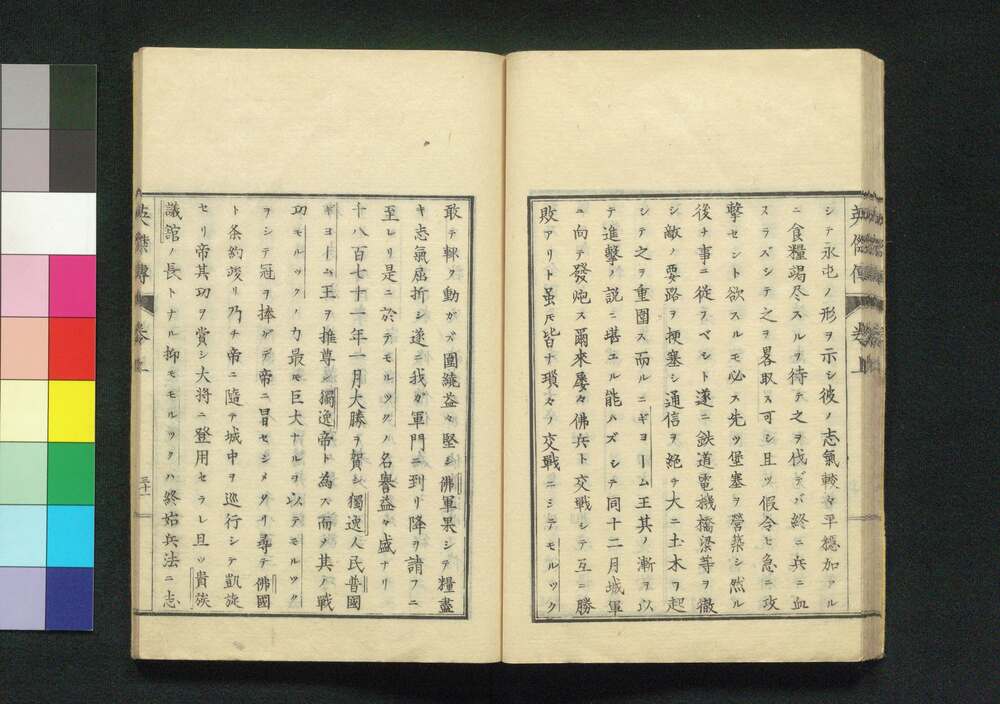 シテ永屯ノ形ヲ示シ彼ノ志氣較々平穩加フル
ニ食糧竭尽スルヲ待テ之ヲ伐デバ終ニ兵ニ血
スラズシテ之ヲ畧取ス可シ且ツ假令ヒ急ニ攻
擊セント欲スルモ必ス先ツ堡塞ヲ營築シ然ル
後チ事ニ從フベシト遂ニ鉄道電機橋梁等ヲ徹
シ敵ノ要路ヲ梗塞シ通信ヲ絶チ大ニ土木ヲ起
シテ之ヲ重圍ス而ルニギヨーム王其ノ漸ヲ以
テ進擊ノ説ニ堪ユル能ハズシテ同十二月城軍
ニ向テ發炮ス爾來屢々佛兵ト交戰シテ互ニ勝
敗アリト虽𪜈皆ナ瑣々ノ交戰ニシテモルツク
敢テ輙ク動ガズ圍繞益々堅シ佛軍果シテ糧盡
キ志氣屈折シ遂ニ我ガ軍門ニ到リ降ヲ請フニ
至レリ是ニ於テモルツクノ名譽益々盛ナリ
十八百七十一年一月大勝ヲ賀シ獨逸人民普國
ギヨーム王ヲ推尊シ獨逸帝ト為ス而メ其ノ戰
功モルツクノ力最モ巨大ナルヲ以テモルツク
ヲシテ冠ヲ捧ゲテ帝ニ冒セシメタリ尋テ佛國
ト条約竣リ乃チ帝ニ隨テ城中ヲ巡行シテ凱旋
セリ帝其功ヲ賞シ大将ニ登用セラレ且ツ貴族
議舘ノ長トナル抑モモルツクハ終始兵法ニ志
英傑傳
卷上
三十一